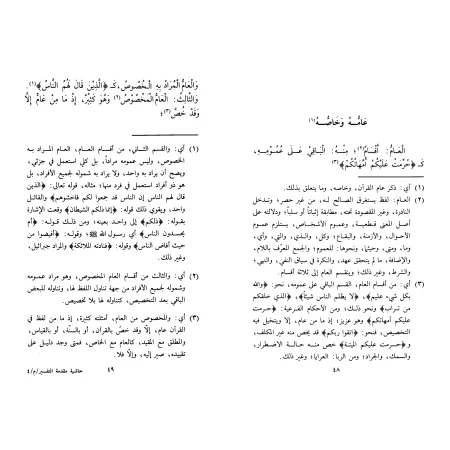 عَامُّهُ وَخَاصُّهُ(١)
العَامُّ: أَقْسَامٌ(٢)؛ مِنْهُ: البَاقِيْ عَلَى عُمُوْمِهِ،
كَـ ﴿حُرِّمَتْ عَلَيْكُمْ أُمَّهَاتُكُمْ﴾(٣)
(١) أي: ذكر عام القرآن، وخاصه، وما يتعلق بذلك.
(٢) العام: لفظ يستغرق الصالح له، من غير حصر؛ وتدخل
النادرة، وغير المقصودة تحته، مطابقة إثباتاً أو سلباً؛ ودلالته على
أصل المعنى قطعية، وعموم الأشخاص، يستلزم عموم
الأحوال، والأزمنة، والبقاع؛ وكل، والذي، والتي، وأي،
وما، ومتى، وحيثما، ونحوها: للعموم؛ والجمع المعرف باللام،
والإضافة، ما لم يتحقق عهد، والنكرة في سياق النفي، والنهي؛
والشرط، وغير ذلك؛ وينقسم العام إلى ثلاثة أقسام.
(٣) أي: من أقسام العام، القسم الباقي على عمومه، نحو: ﴿والله
بكل شيء عليم﴾، ﴿لا يظلم الناس شيئاً﴾، ﴿الذي خلقكم
من تراب﴾ ونحو ذلك؛ ومن الأحكام الفرعية: ﴿حرمت
عليكم أمهاتكم﴾ وهو عزيز؛ إذ ما من عام، إلا ويتخيل فيه
التخصيص، فنحو: ﴿اتقوا ربكم﴾ خص منه غير المكلف،
و﴿حرمت عليكم الميتة﴾ خص منه حالة الاضطرار،
والسمك، والجراد؛ ومن الربا: العرايا؛ وغير ذلك.
٤٨
وَالْعَامُّ الْمُرَادُ بِهِ الْخُصُوْصُ، كَـ ﴿الَّذِيْنَ قَالَ لَهُمُ النَّاسُ﴾(١)،
وَالثَّالِثُ: الْعَامُّ الْمَخْصُوْصُ(٢) وَهُوَ كَثِيْرٌ، إِذْ مَا مِنْ عَامٍّ إِلَّا
وَقَدْ خُصَّ(٣)؛
(١) أي: والقسم الثاني، من أقسام العام، العام المراد به
الخصوص، وليس عمومه مراداً، بل كلي استعمل في جزئي،
يصح أن يراد به واحد، ولا يراد به شموله لجميع الأفراد، بل
هو ذو أفراد استعمل في فرد منها؛ مثاله، قوله تعالى: ﴿الذين
قال لهم الناس إن الناس قد جمعوا لكم فاخشوهم﴾ والقائل
واحد، ويقوي ذلك قوله: ﴿إنما ذلكم الشيطان﴾ وقعت الإشارة
بقوله: ﴿ذلكم﴾ إلى واحد بعينه؛ ومن ذلك قوله: ﴿أم
يحسدون الناس﴾ أي رسول الله ﷺ؛ وقوله: ﴿أفيضوا من
حيث أفاض الناس﴾ وقوله: ﴿فنادته الملائكة﴾ والمراد جبرائيل،
وغير ذلك.
(٢) أي: والثالث من أقسام العام المخصوص، وهو مراد عمومه
وشموله لجميع الأفراد من جهة تناول اللفظ لها، وتناوله للبعض
الباقي بعد التخصيص، كتناوله لها بلا تخصيص.
(٣) أي: والمخصوص من العام، أمثلته كثيرة، وهو أكثر من
القرآن عام، إلا وقد خص بالقرآن، أو بالسنة، أو بالقياس،
والمطلق مع القيد، كالعام مع الخاص، فمتى وجد دليل على
تقييده، صير إليه، وإلا فلا.
٤٩
حاشية مقدمة التفسير/م/٤